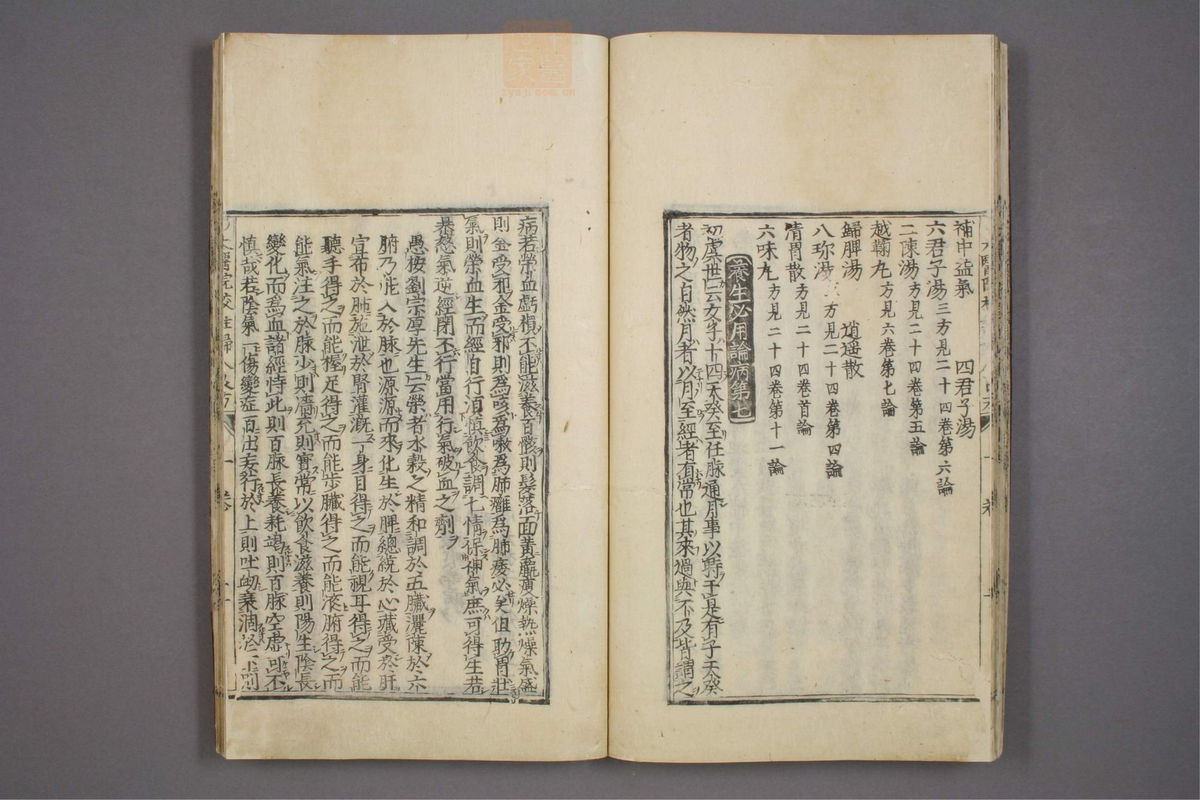 補中益氣　四君子湯
六君子湯三方見二十四卷第六論
二陳湯方見二十四卷第五論
越鞠丸方見六卷第七論
歸脾湯　逍遥散
八珎湯方見二十四卷第四論
清胃散方見二十四卷首論
六味丸方見二十四卷第十一論
養生必用論病第七
初虞世云女子十四天癸至任脉通月事以時下是有子天癸
者物之自然月者以月至經者有常也其來過與不及皆謂之
病若榮血虧損不能滋養百骸則髮落面黄羸瘦燥熱燥氣盛
則金受邪金受邪則爲咳爲嗽爲肺癰為肺痿必矣但助胃壯
氣則榮血生而經自行湏慎飲食調七情保神氣庶可得生若
暴怒氣逆經閉不行當用行氣破血之劑
愚按劉宗厚先生云榮者水糓之精和調於五臓灑陳於六
腑乃能入於脉也源源而來化生於脾總統於心藏受於肝
宣布於肺施泄於腎灌漑一身目得之而能視耳得之而能
聽手得之而能握足得之而能歩臓得之而能液腑得之而
能氣注之於脉少則濇充則實常以飲食滋養則陽生陰長
變化而爲血諸經恃此則百脉長養耗竭則百脉空虚可不
慎哉若陰氣一傷變症百出妄行於上則吐衂衰涸於下則
太醫院校註婦人良方　一卷